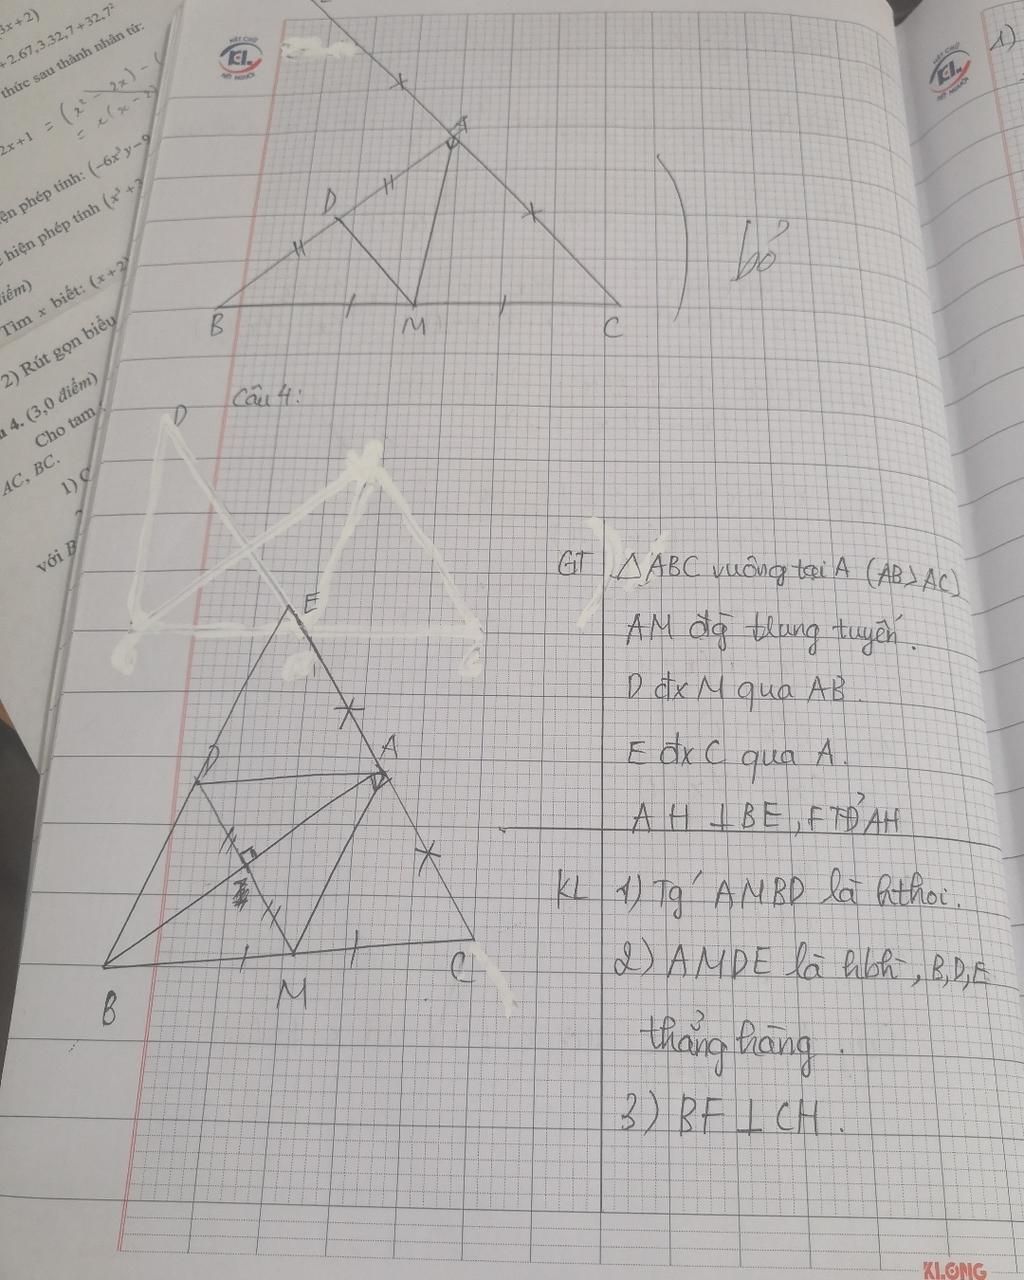 3x+2)
+2.67,3.32,7+32,7²
thức sau thành nhân tử:
2x+1 = (x² - 2x) - (
= x(x - 2)
iện phép tính: (-6x³y-9
hiện phép tính (x³+2
iểm)
Tìm x biết: (x+2)
2) Rút gọn biểu
4. (3,0 điểm)
Cho tam
AC, BC.
1) C
với B
NÉT CHỮ
KL
NẾT NGƯỜI
NÉT CHỮ
KL
NẾT NGƯỜI
1)
A
D
B
M
C
bỏ
Câu 4:
D
E
D
A
B
M
C
GT
△ABC vuông tại A (AB>AC)
AM đg trung tuyến.
D đx M qua AB.
E đx C qua A.
AH ⊥ BE, F TĐ AH
KL
1) Tg AMBD là hthoi.
2) AMDE là hbh, B,D,E
thẳng hàng.
3) BF ⊥ CH.
KLONG